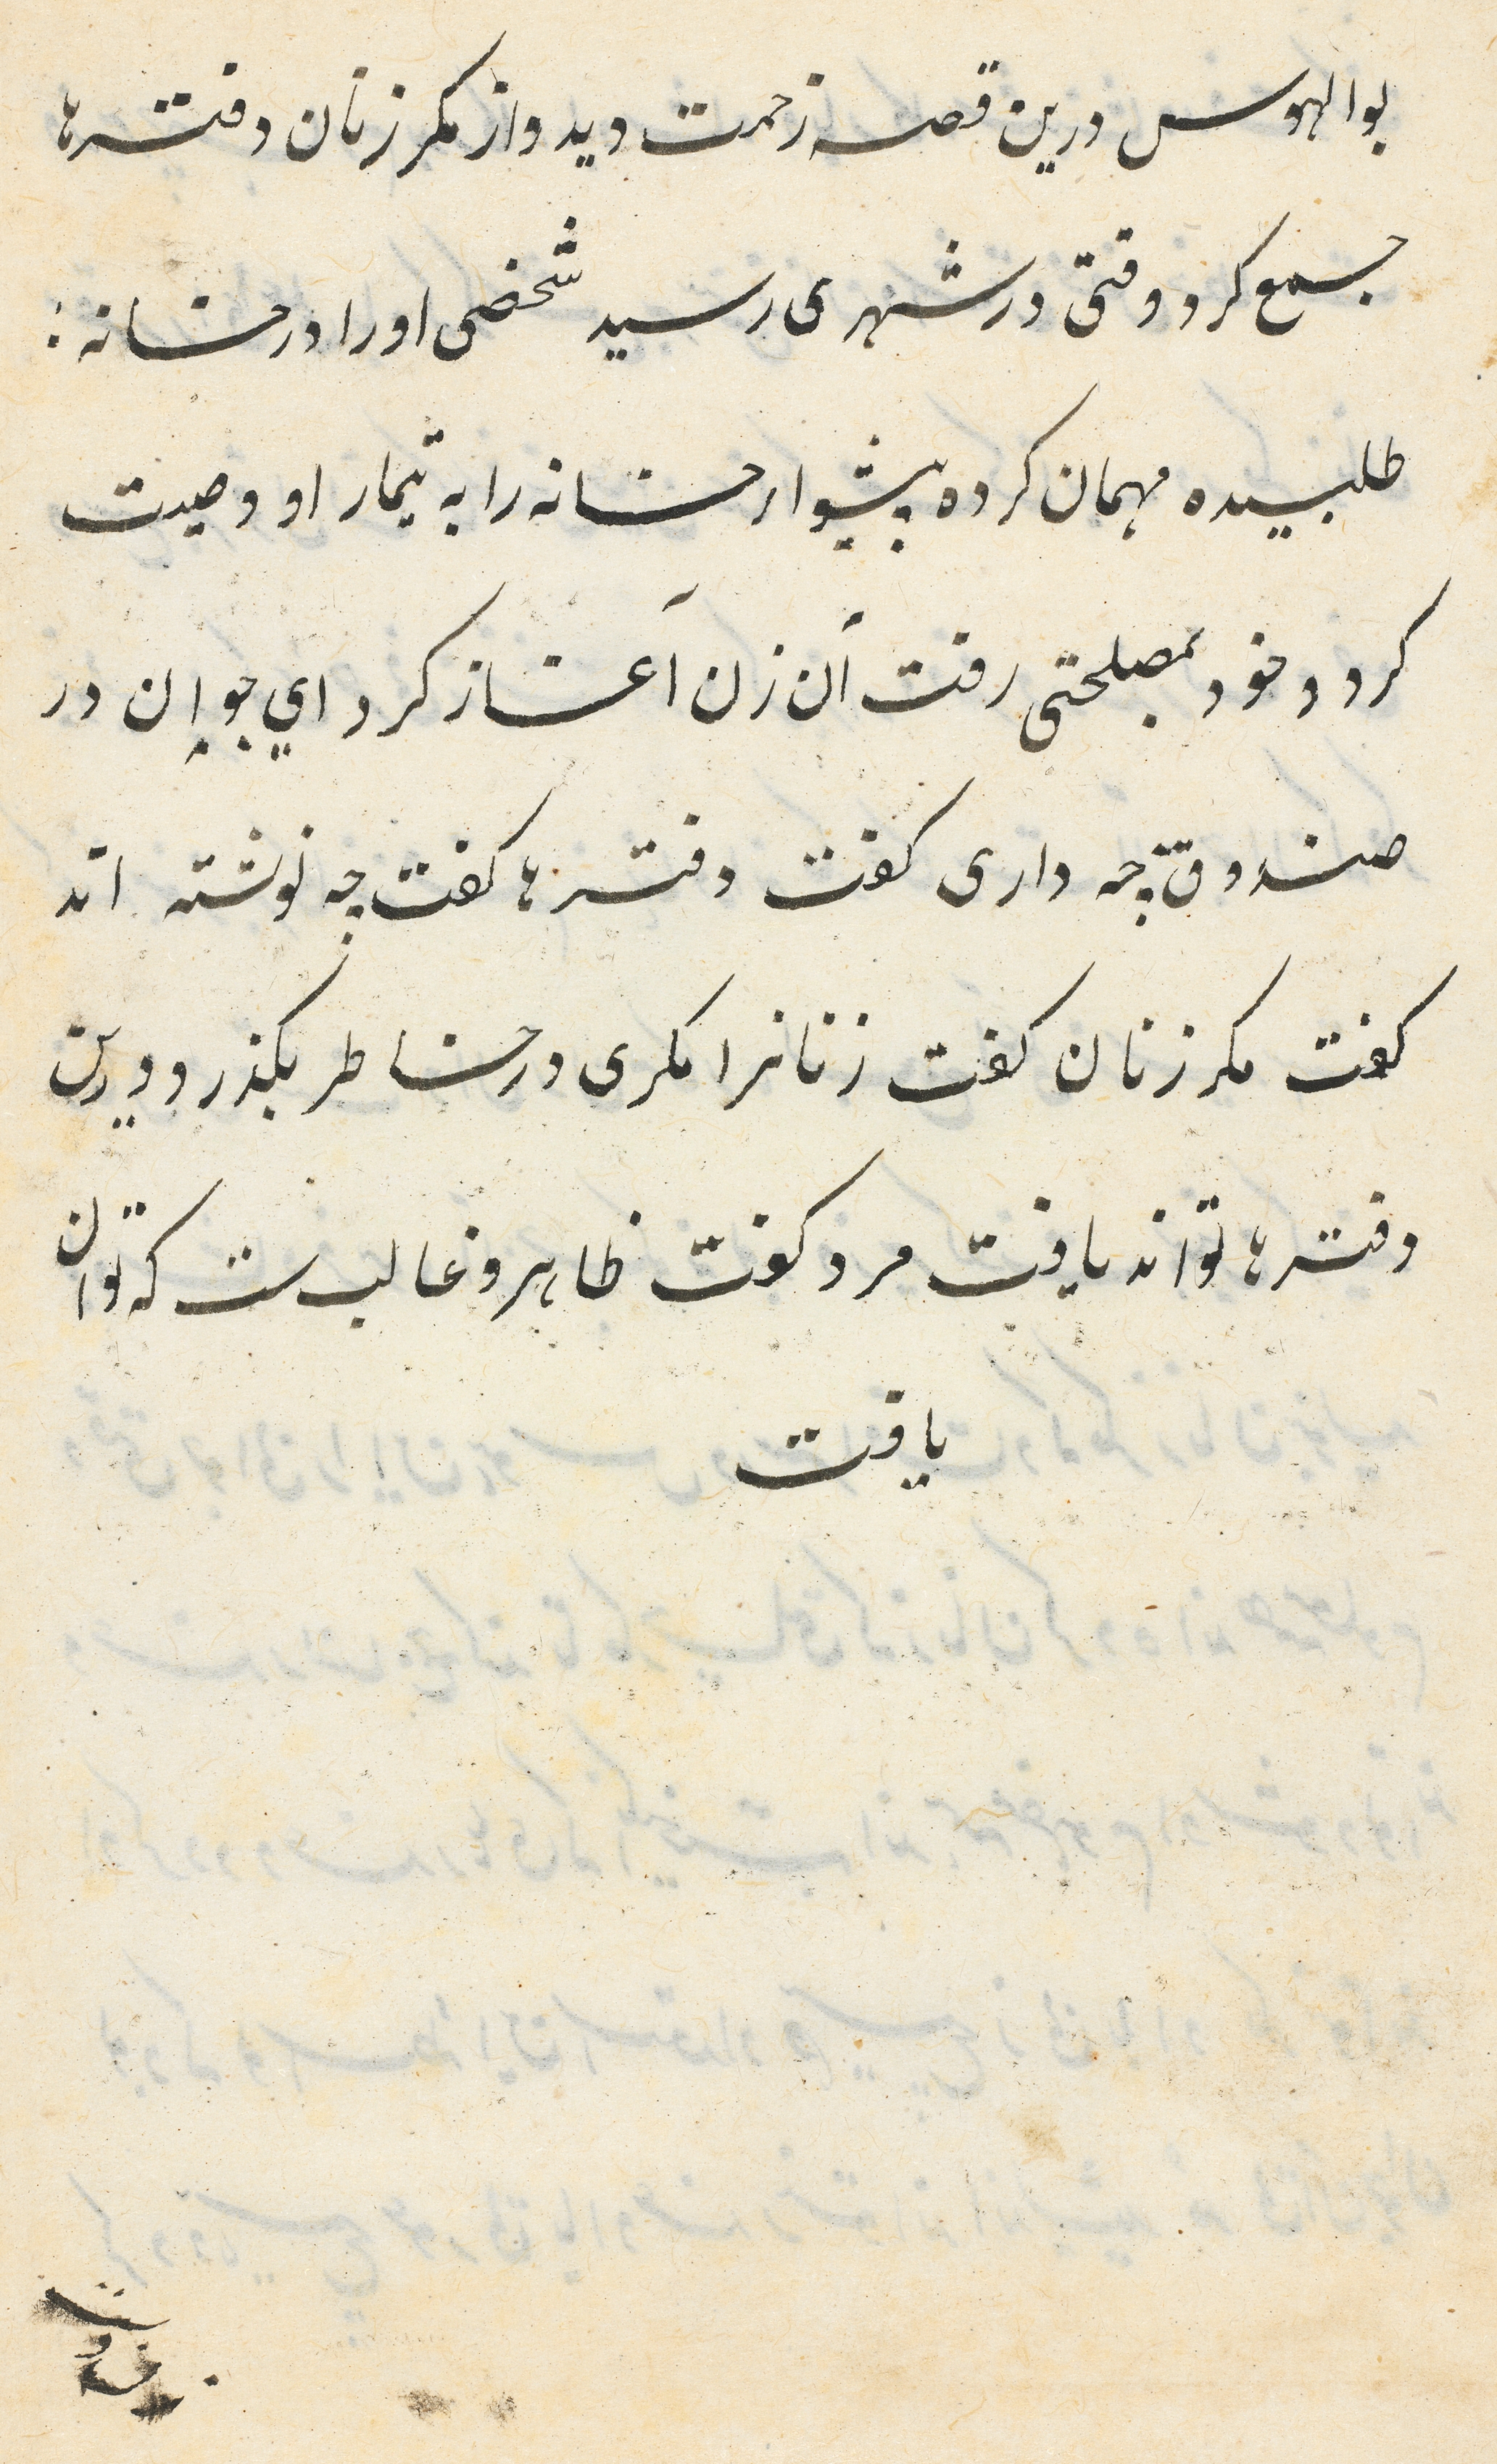 بوالهوس درین قصه زحمت دید و از مکر زنان دفترها
جمع کرد وقتی در شهری رسید شخصی او را در خانه
طلبیده مهمان کرده پیشوار خانه را به تیمار او وصیت
کرد و خود بمصلحتی رفت آن زن آغاز کرد ای جوان در
صندوق چه داری کفت دفترها کفت چه نوشته اند
کفت مکر زنان کفت زنانرا مکری در خاطر بکذرد درین
دفترها تواند یافت مرد کفت ظاهر و غالبست که توان
یافت